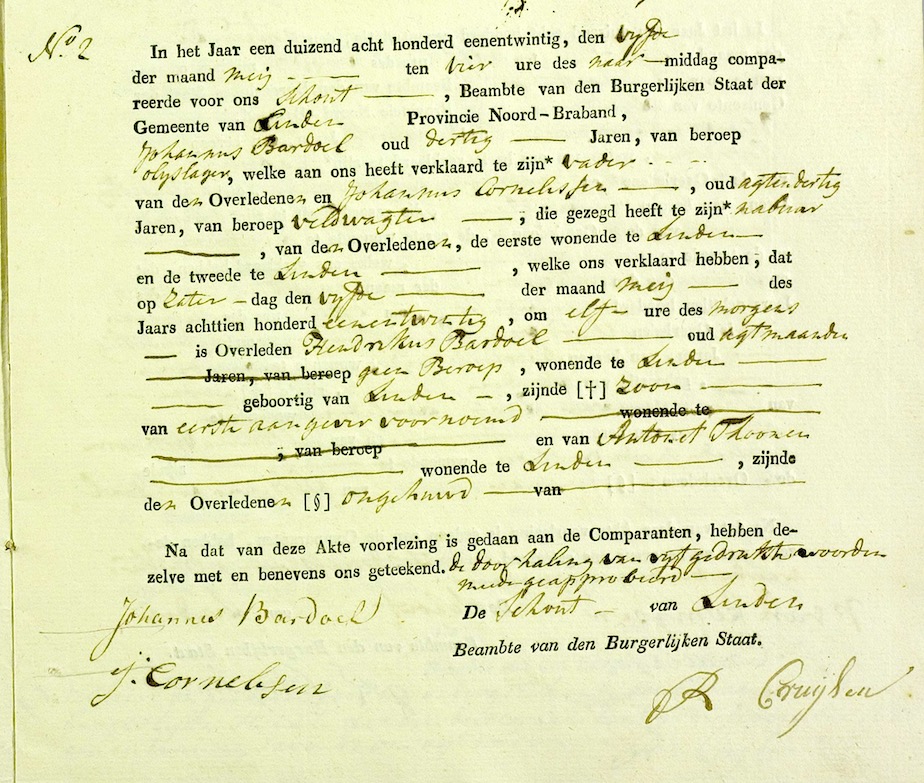 No 2
In het Jaar een duizend acht honderd eenentwintig, den vyfde
der maand meij ten vier ure des naar-middag compa-
reerde voor ons Schout, Beambte van den Burgerlijken Staat der
Gemeente van Linden Provincie Noord-Braband,
Johannus Bardoel oud dertig Jaren, van beroep
olyslager, welke aan ons heeft verklaard te zijn* vader
van den Overledenen en Johannus Cornelissen, oud agtendertig
Jaren, van beroep veldwagter, die gezegd heeft te zijn* nabuur
, van den Overledenen, de eerste wonende te Linden
en de tweede te Linden, welke ons verklaard hebben, dat
op zater-dag den vyfde der maand meij des
Jaars achttien honderd eenentwintig, om elf ure des morgens
is Overleden Hendrikus Bardoel oud agt maanden
Jaren, van beroep geen Beroep, wonende te Linden
geboortig van Linden, zijnde [†] zoon
van eerste aangever voornoemd wonende te
, van beroep en van Antonet Thoonen
wonende te Linden, zijnde
den Overledenen [§] ongehuwd van
Na dat van deze Akte voorlezing is gedaan aan de Comparanten, hebben de-
zelve met en benevens ons geteekend. de doorhaling van vyf gedrukte woorden
mede geapprobeerd
Johannus Bardoel De Schout van Linden
Beambte van den Burgerlijken Staat.
J: Cornelissen
Cruijsen